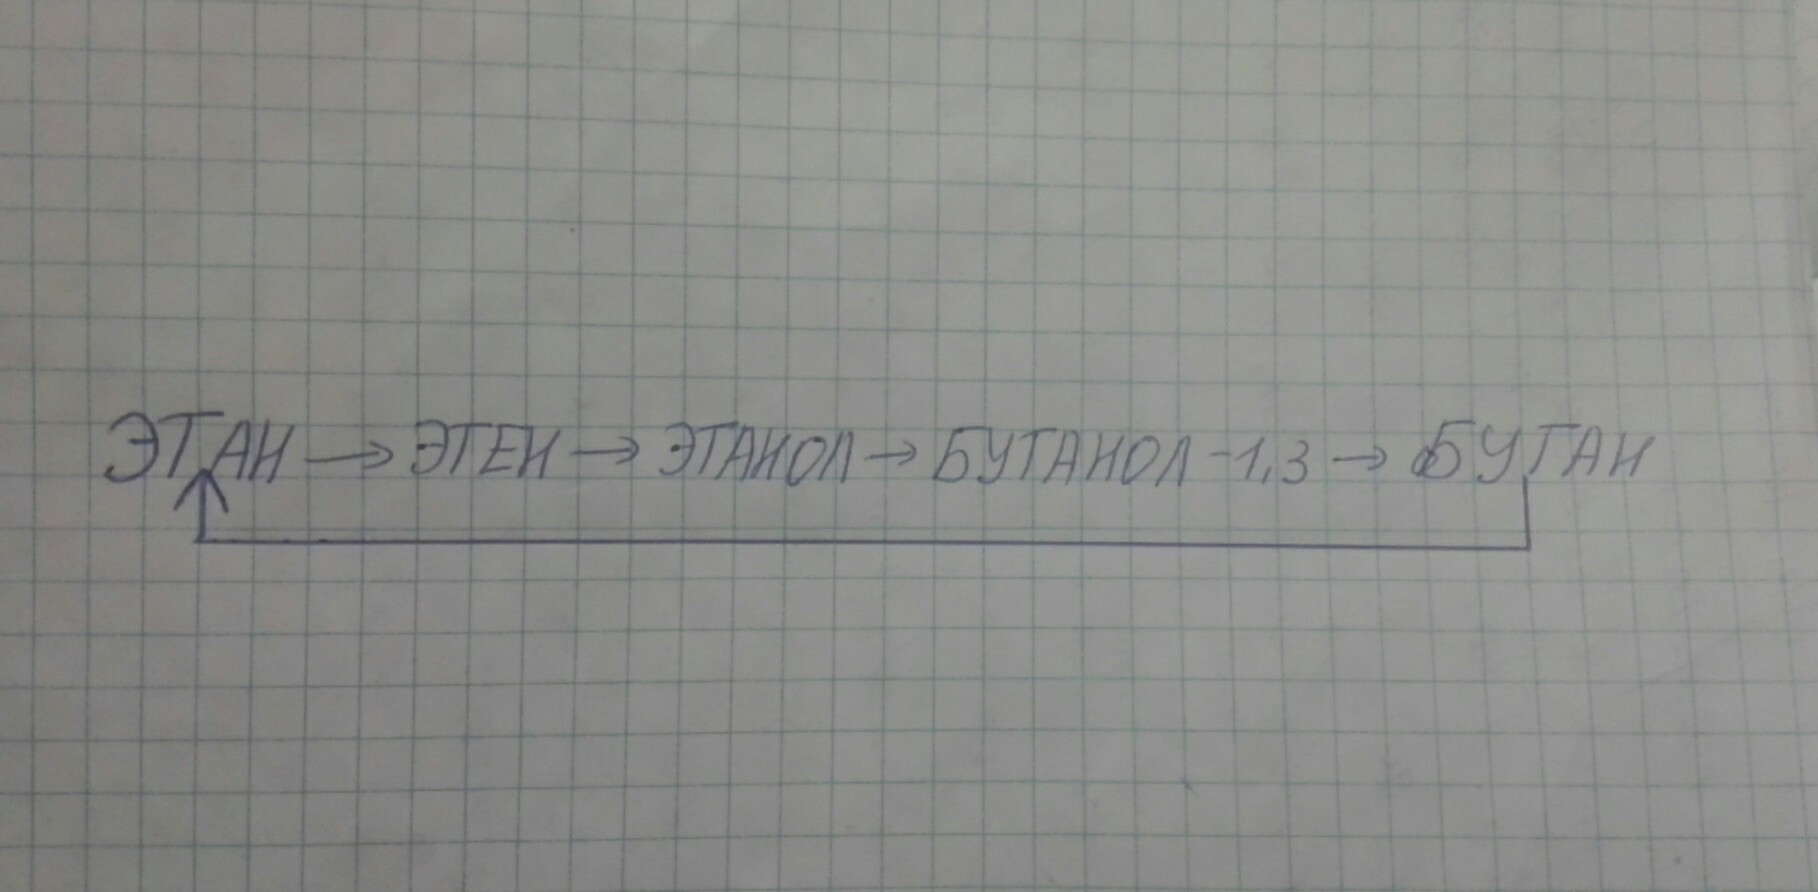 ЭТАН → ЭТЕН → ЭТАНОЛ → БУТАНОЛ-1,3 → БУТАН